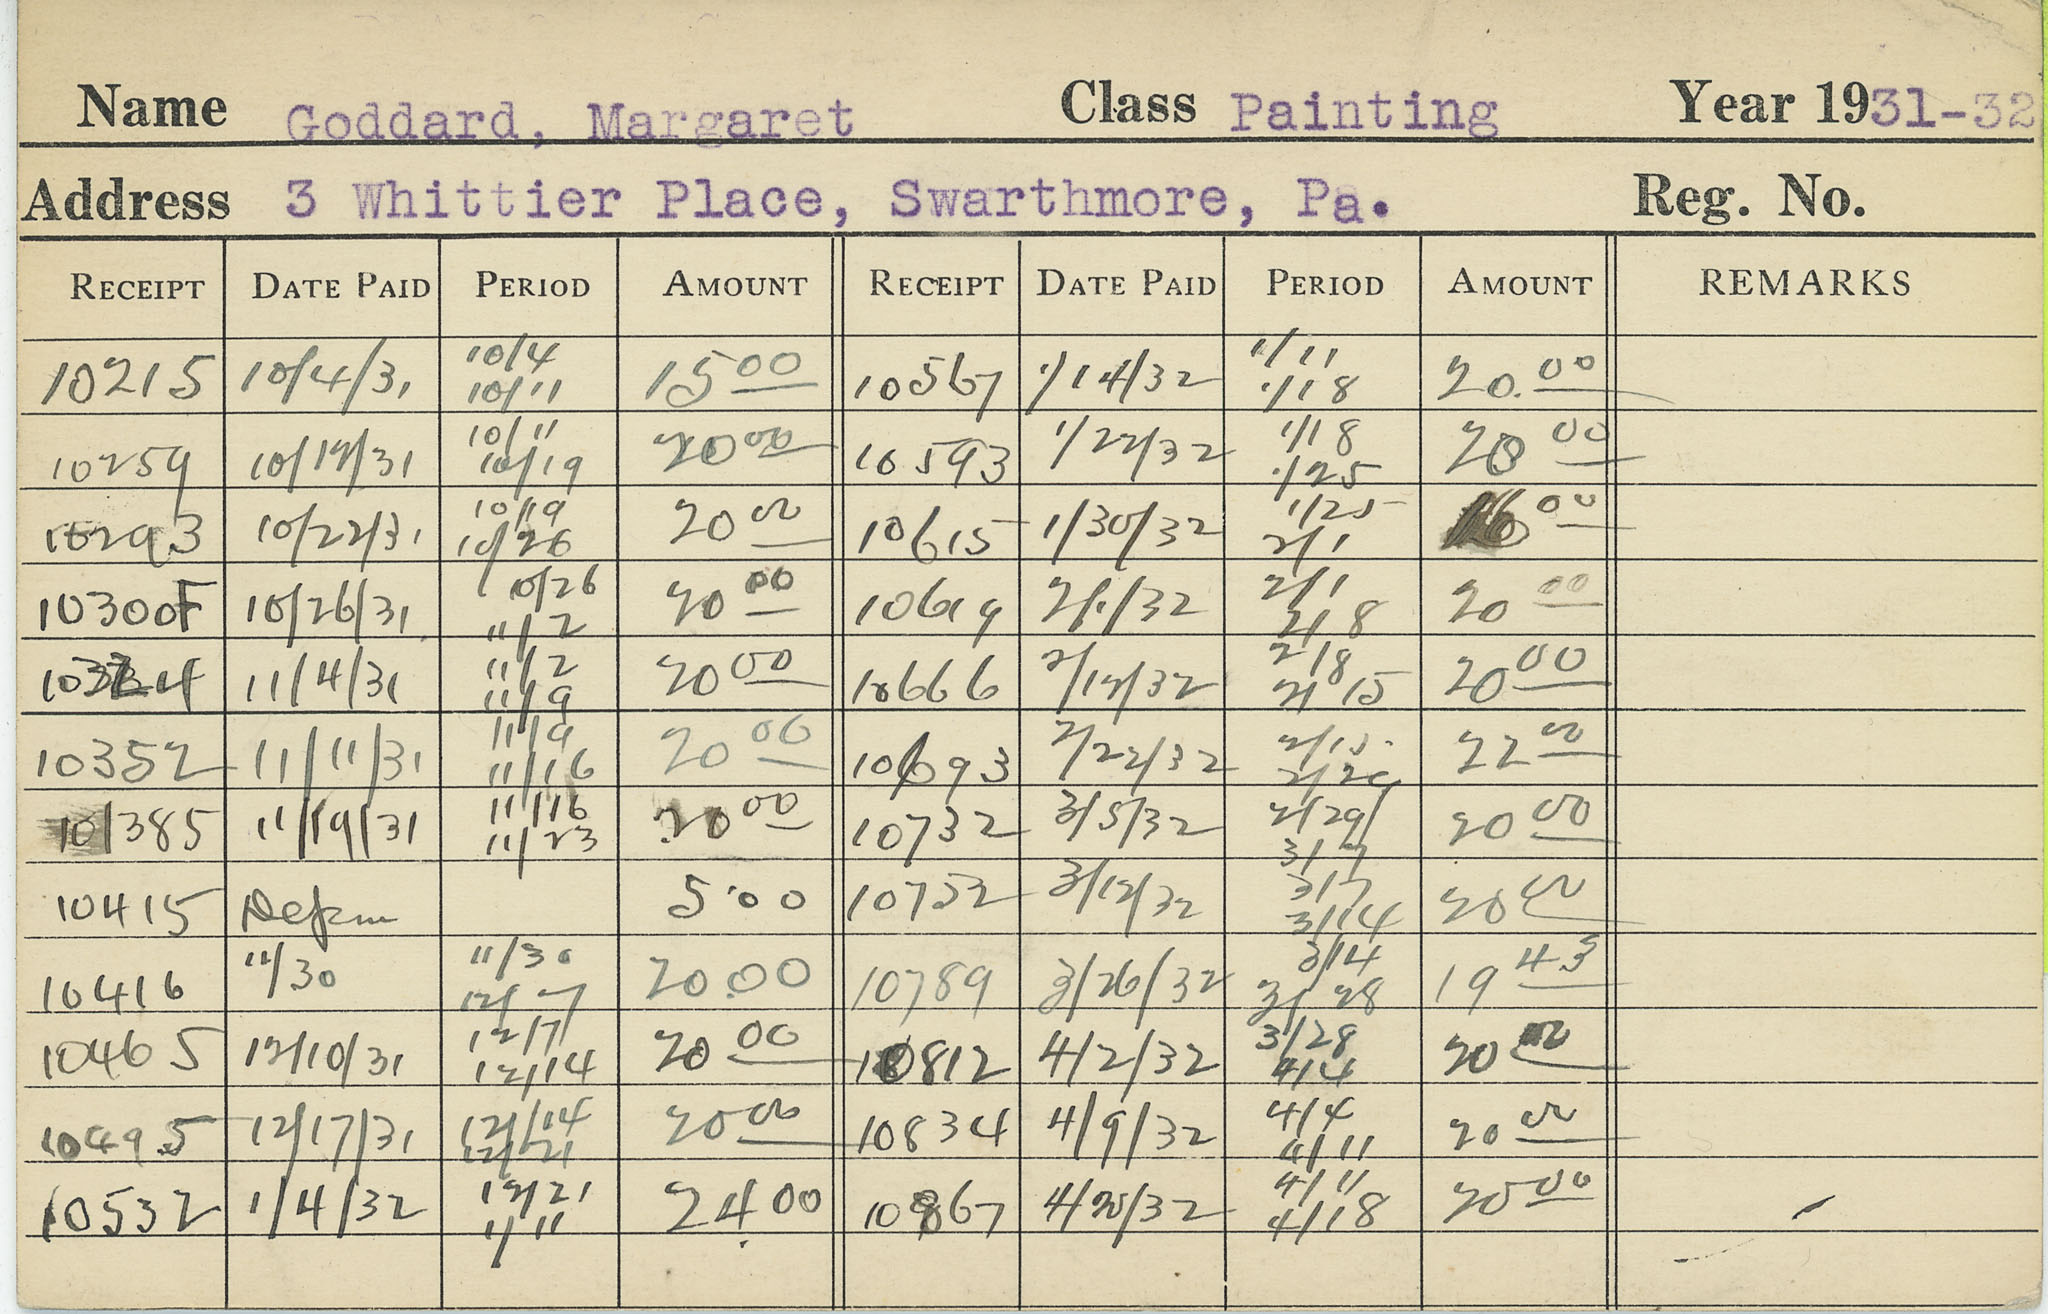 Name Goddard, Margaret Class Painting Year 1931-32
Address 3 Whittier Place, Swarthmore, Pa. Reg. No.
RECEIPT DATE PAID PERIOD AMOUNT RECEIPT DATE PAID PERIOD AMOUNT REMARKS
10215 10/4/31 10/4 10/11 15 00 10567 1/14/32 1/11 1/18 20.00
10259 10/12/31 10/11 10/19 20 00 10593 1/22/32 1/18 1/25 20 00
10293 10/22/31 10/19 10/26 20 00 10615 1/30/32 1/25 2/1 16 00
10300F 10/26/31 10/26 11/2 20 00 10619 2/1/32 2/1 2/8 20 00
11/4/31 11/2 11/9 20 00 10666 2/12/32 2/8 2/15 20 00
10352 11/11/31 11/9 11/16 20 00 10693 2/22/32 2/15 2/29 22 00
10385 11/19/31 11/16 11/23 20 00 10732 3/5/32 2/29 3/7 20 00
10415 5.00 10752 3/12/32 3/7 3/14 20 00
10416 11/30 11/30 12/7 20.00 10789 3/26/32 3/14 3/28 19 43
10465 12/10/31 12/7 12/14 20 00 10812 4/2/32 3/28 4/4 20 00
10495 12/17/31 12/14 12/21 20 00 10834 4/9/32 4/4 4/11 20 00
10532 1/4/32 12/21 1/11 24 00 10867 4/20/32 4/11 4/18 20 00